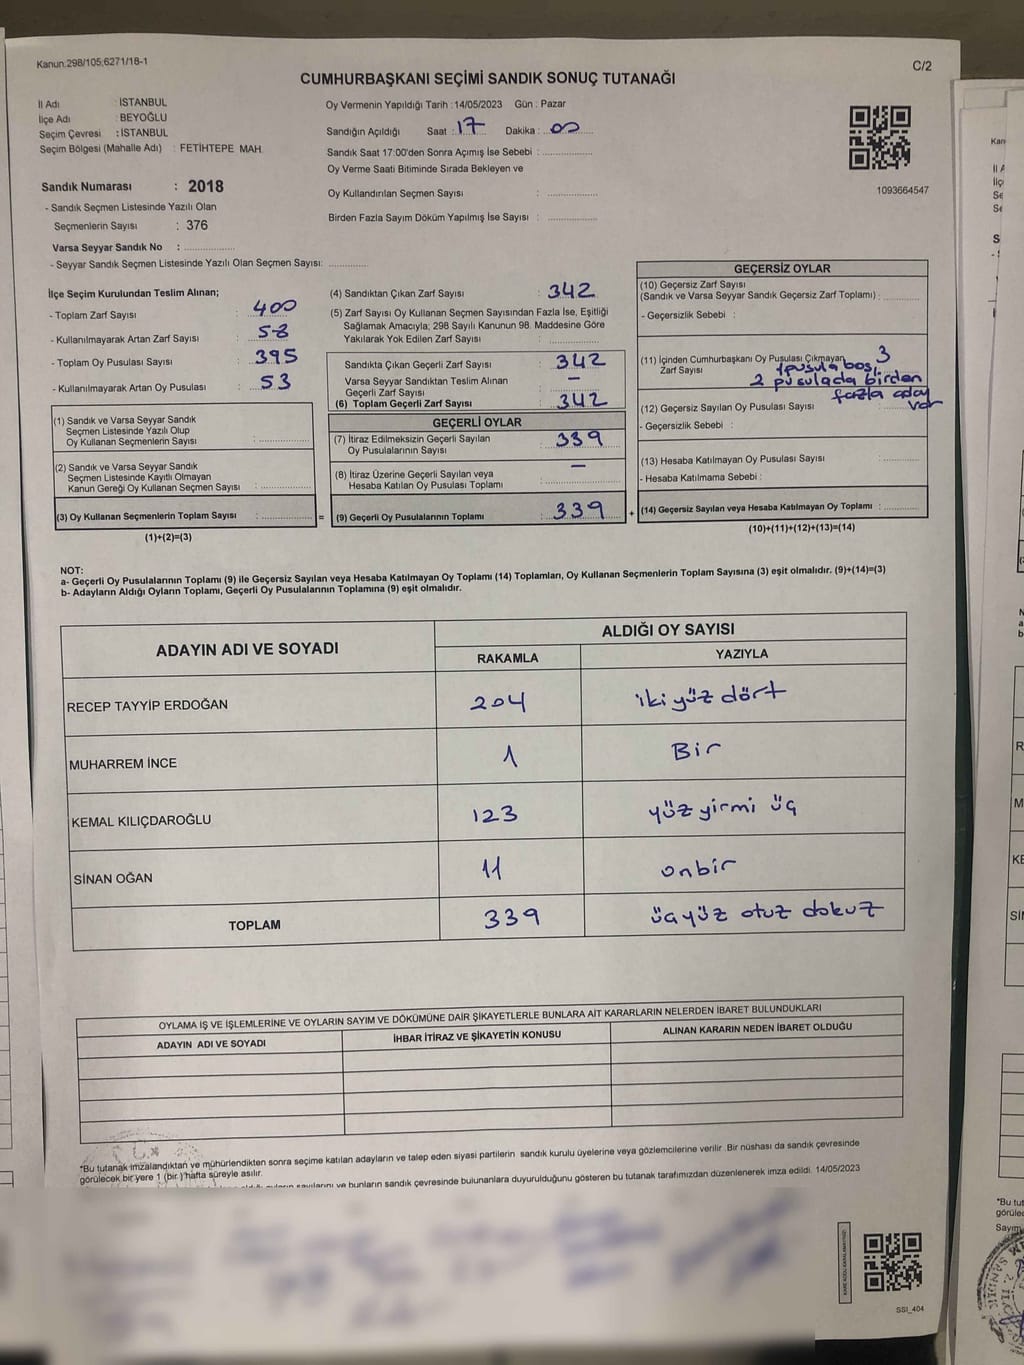 Kanun:298/105;6271/18-1
C/2
CUMHURBAŞKANI SEÇİMİ SANDIK SONUÇ TUTANAĞI
İl Adı : İSTANBUL
İlçe Adı : BEYOĞLU
Seçim Çevresi : İSTANBUL
Seçim Bölgesi (Mahalle Adı) : FETİHTEPE MAH.
Sandık Numarası : 2018
- Sandık Seçmen Listesinde Yazılı Olan
Seçmenlerin Sayısı : 376
Varsa Seyyar Sandık No :
- Seyyar Sandık Seçmen Listesinde Yazılı Olan Seçmen Sayısı:
Oy Vermenin Yapıldığı Tarih :14/05/2023 Gün : Pazar
Sandığın Açıldığı Saat : 17 Dakika : 00
Sandık Saat 17:00'den Sonra Açımış İse Sebebi :
Oy Verme Saati Bitiminde Sırada Bekleyen ve
Oy Kullandırılan Seçmen Sayısı :
Birden Fazla Sayım Döküm Yapılmış İse Sayısı :
1093664547
İlçe Seçim Kurulundan Teslim Alınan;
- Toplam Zarf Sayısı : 400
- Kullanılmayarak Artan Zarf Sayısı : 58
- Toplam Oy Pusulası Sayısı : 395
- Kullanılmayarak Artan Oy Pusulası : 53
(1) Sandık ve Varsa Seyyar Sandık
Seçmen Listesinde Yazılı Olup
Oy Kullanan Seçmenlerin Sayısı :
(2) Sandık ve Varsa Seyyar Sandık
Seçmen Listesinde Kayıtlı Olmayan
Kanun Gereği Oy Kullanan Seçmen Sayısı :
(3) Oy Kullanan Seçmenlerin Toplam Sayısı :
(1)+(2)=(3)
(4) Sandıktan Çıkan Zarf Sayısı : 342
(5) Zarf Sayısı Oy Kullanan Seçmen Sayısından Fazla İse, Eşitliği
Sağlamak Amacıyla; 298 Sayılı Kanunun 98. Maddesine Göre
Yakılarak Yok Edilen Zarf Sayısı :
Sandıkta Çıkan Geçerli Zarf Sayısı : 342
Varsa Seyyar Sandıktan Teslim Alınan
Geçerli Zarf Sayısı : —
(6) Toplam Geçerli Zarf Sayısı : 342
GEÇERLİ OYLAR
(7) İtiraz Edilmeksizin Geçerli Sayılan
Oy Pusulalarının Sayısı : 339
(8) İtiraz Üzerine Geçerli Sayılan veya
Hesaba Katılan Oy Pusulası Toplamı : —
= (9) Geçerli Oy Pusulalarının Toplamı : 339
GEÇERSİZ OYLAR
(10) Geçersiz Zarf Sayısı
(Sandık ve Varsa Seyyar Sandık Geçersiz Zarf Toplamı) :
- Geçersizlik Sebebi :
(11) İçinden Cumhurbaşkanı Oy Pusulası Çıkmayan 3
Zarf Sayısı 1 pusula boş,
2 pusulada birden
fazla aday
var
(12) Geçersiz Sayılan Oy Pusulası Sayısı :
- Geçersizlik Sebebi :
(13) Hesaba Katılmayan Oy Pusulası Sayısı :
- Hesaba Katılmama Sebebi :
+ (14) Geçersiz Sayılan veya Hesaba Katılmayan Oy Toplamı :
(10)+(11)+(12)+(13)=(14)
NOT:
a- Geçerli Oy Pusulalarının Toplamı (9) ile Geçersiz Sayılan veya Hesaba Katılmayan Oy Toplamı (14) Toplamları, Oy Kullanan Seçmenlerin Toplam Sayısına (3) eşit olmalıdır. (9)+(14)=(3)
b- Adayların Aldığı Oyların Toplamı, Geçerli Oy Pusulalarının Toplamına (9) eşit olmalıdır.
ADAYIN ADI VE SOYADI
ALDIĞI OY SAYISI
RAKAMLA YAZIYLA
RECEP TAYYİP ERDOĞAN 204 iki yüz dört
MUHARREM İNCE 1 Bir
KEMAL KILIÇDAROĞLU 123 yüz yirmi üç
SİNAN OĞAN 11 onbir
TOPLAM 339 üçyüz otuz dokuz
OYLAMA İŞ VE İŞLEMLERİNE VE OYLARIN SAYIM VE DÖKÜMÜNE DAİR ŞİKAYETLERLE BUNLARA AİT KARARLARIN NELERDEN İBARET BULUNDUKLARI
ADAYIN ADI VE SOYADI İHBAR İTİRAZ VE ŞİKAYETİN KONUSU ALINAN KARARIN NEDEN İBARET OLDUĞU
*Bu tutanak imzalandıktan ve mühürlendikten sonra seçime katılan adayların ve talep eden siyasi partilerin sandık kurulu üyelerine veya gözlemcilerine verilir. Bir nüshası da sandık çevresinde
görülecek bir yere 1 (bir) hafta süreyle asılır.
sayılarını ve bunların sandık çevresinde bulunanlara duyurulduğunu gösteren bu tutanak tarafımızdan düzenlenerek imza edildi. 14/05/2023
SSI_404